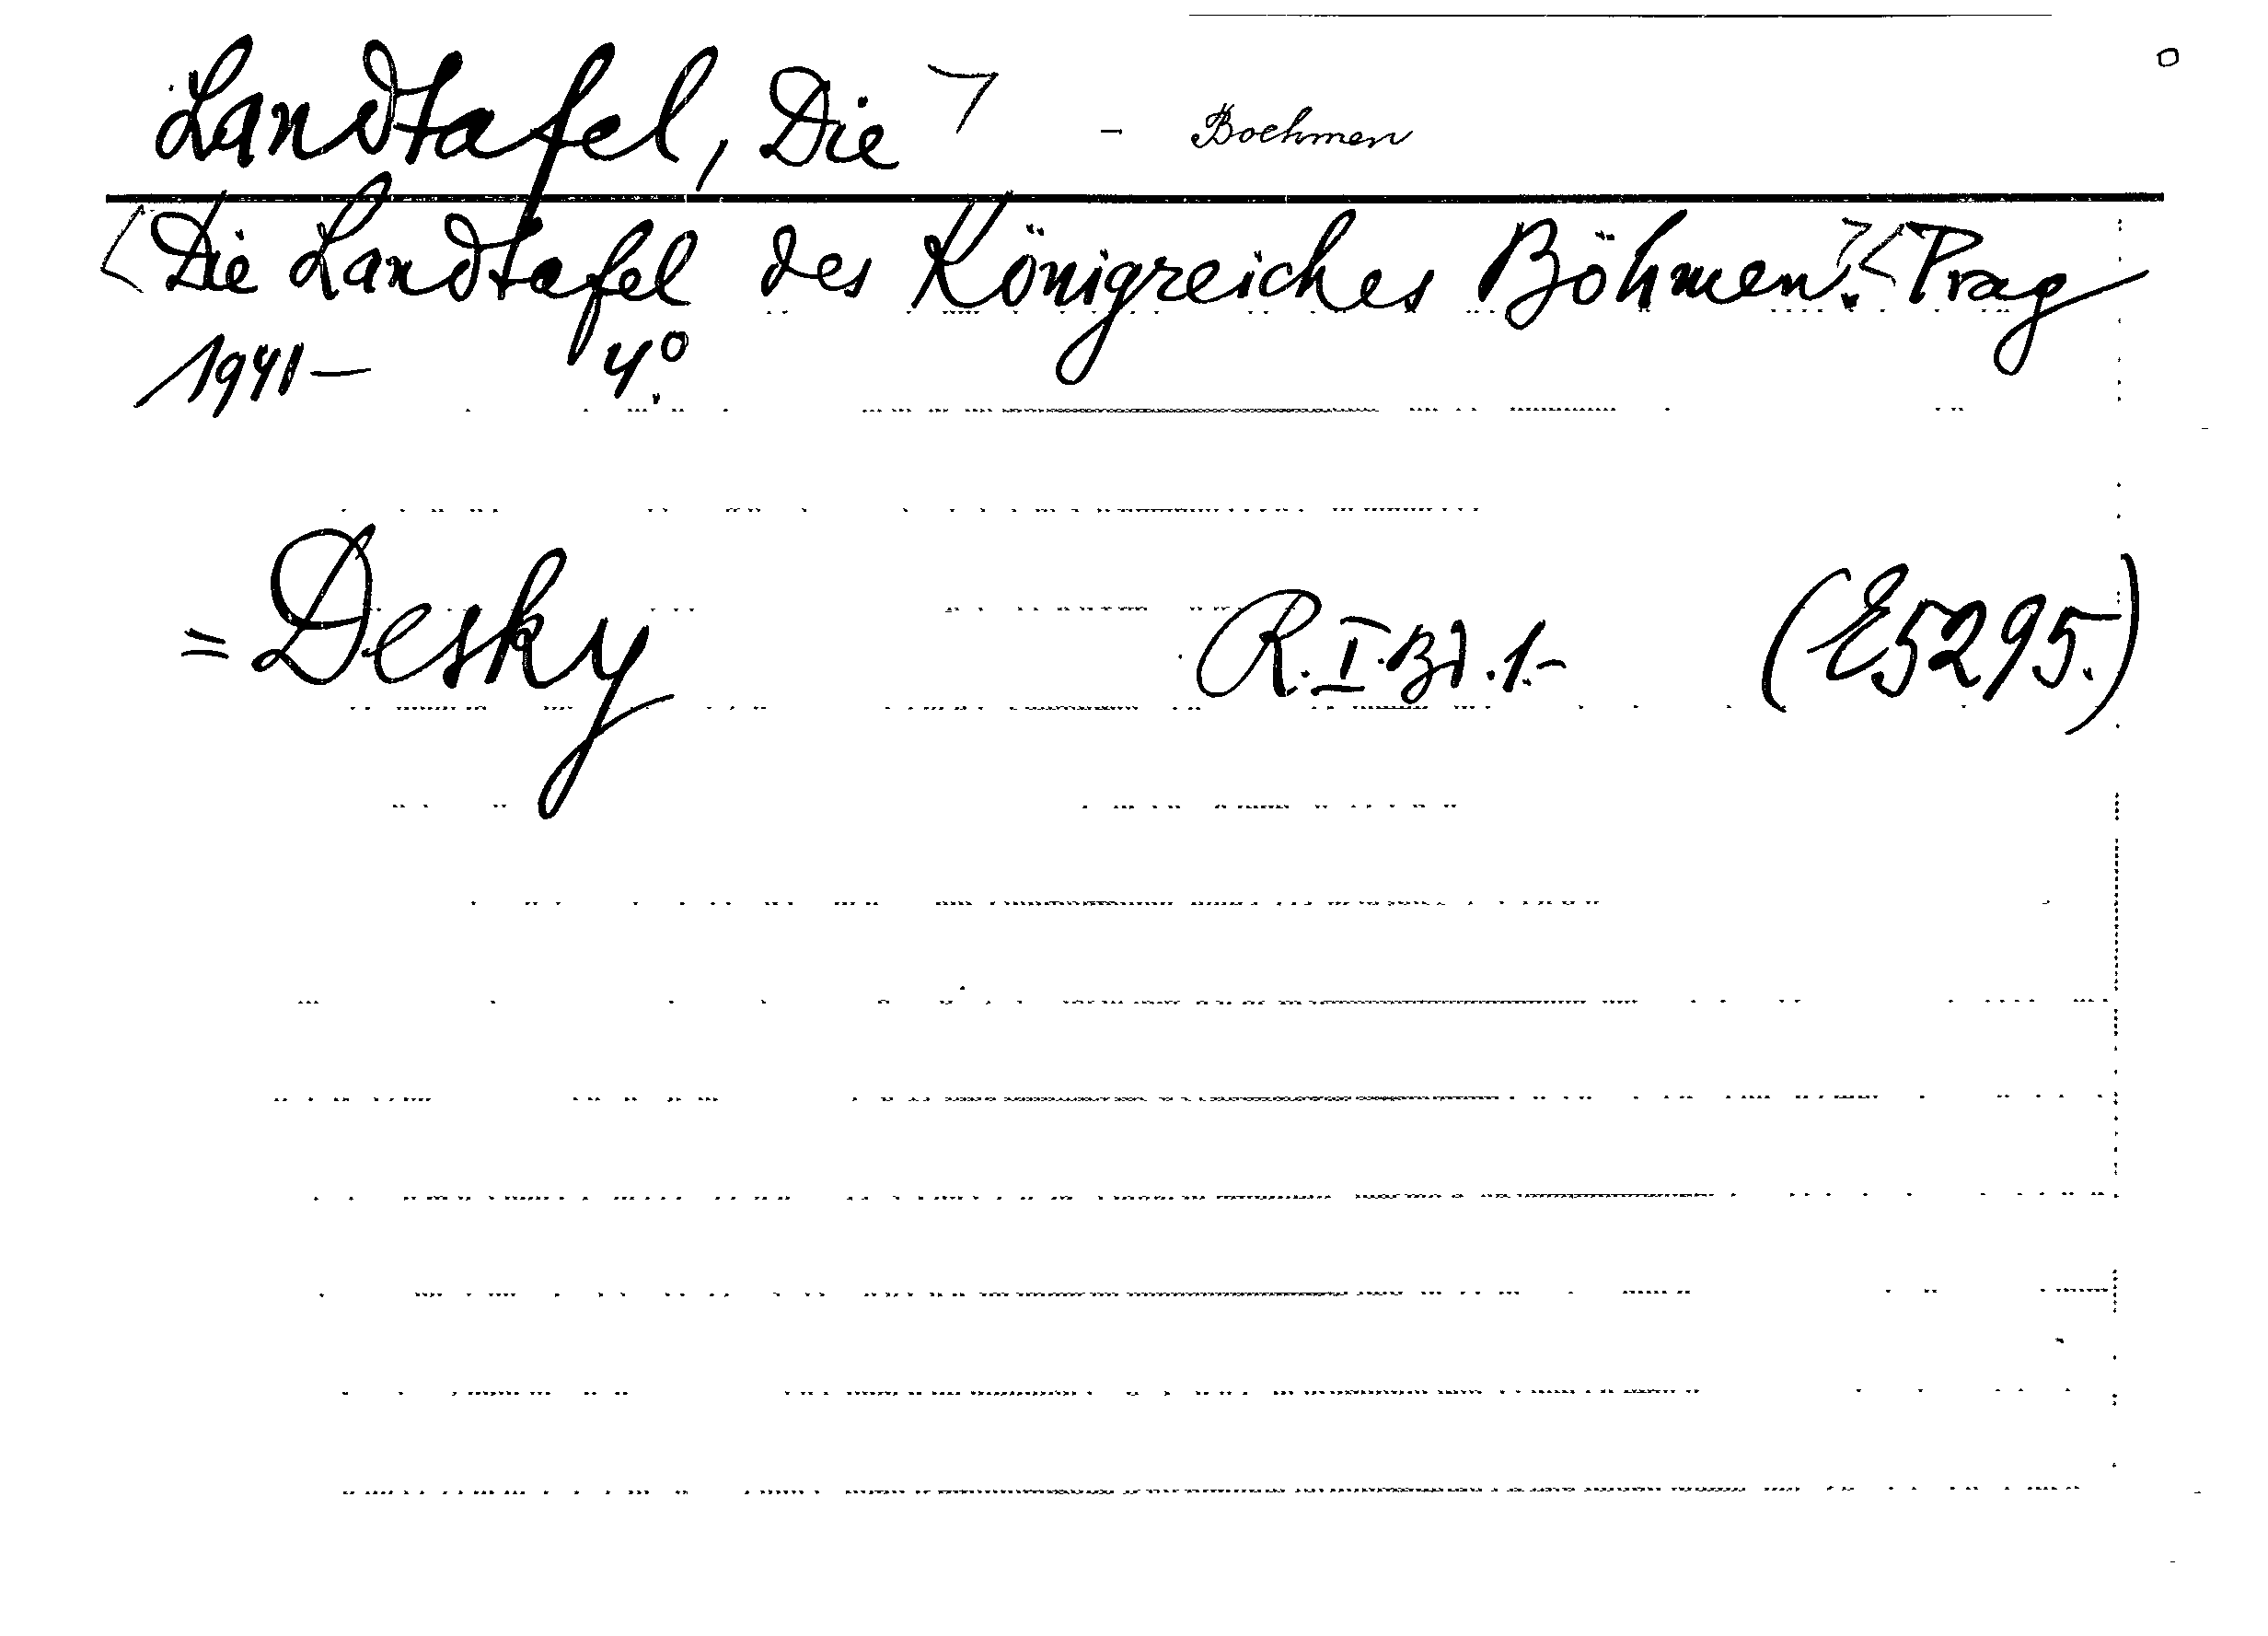 Landtafel, Die> - Boehmen
<Die Landtafel des Königreiches Böhmen.><Prag
1941— 4º.
= Desky R.I.Bd.1.- (E5295.)